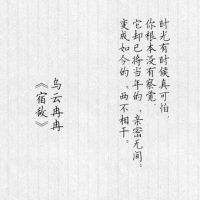 时光有时候真可怕，
你根本没有察觉，
它却已将当年的、亲密无间，
变成如今的、两不相干。
乌云冉冉
《宿敌》